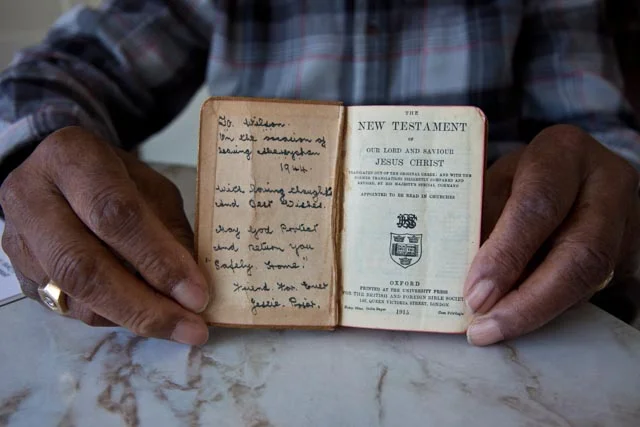 To Wilson.
On the occasion of
leaving
1944.
with loving thoughts
and Best Wishes.
May God Protect
and return you
"Safely Home!"
Friend For Ever
Leslie.
THE
NEW TESTAMENT
OF
OUR LORD AND SAVIOUR
JESUS CHRIST
TRANSLATED OUT OF THE ORIGINAL GREEK: AND WITH THE
FORMER TRANSLATIONS DILIGENTLY COMPARED AND
REVISED, BY HIS MAJESTY'S SPECIAL COMMAND
APPOINTED TO BE READ IN CHURCHES
OXFORD
PRINTED AT THE UNIVERSITY PRESS
FOR THE BRITISH AND FOREIGN BIBLE SOCIETY
146, QUEEN VICTORIA STREET, LONDON
1915
Cum Privilegio